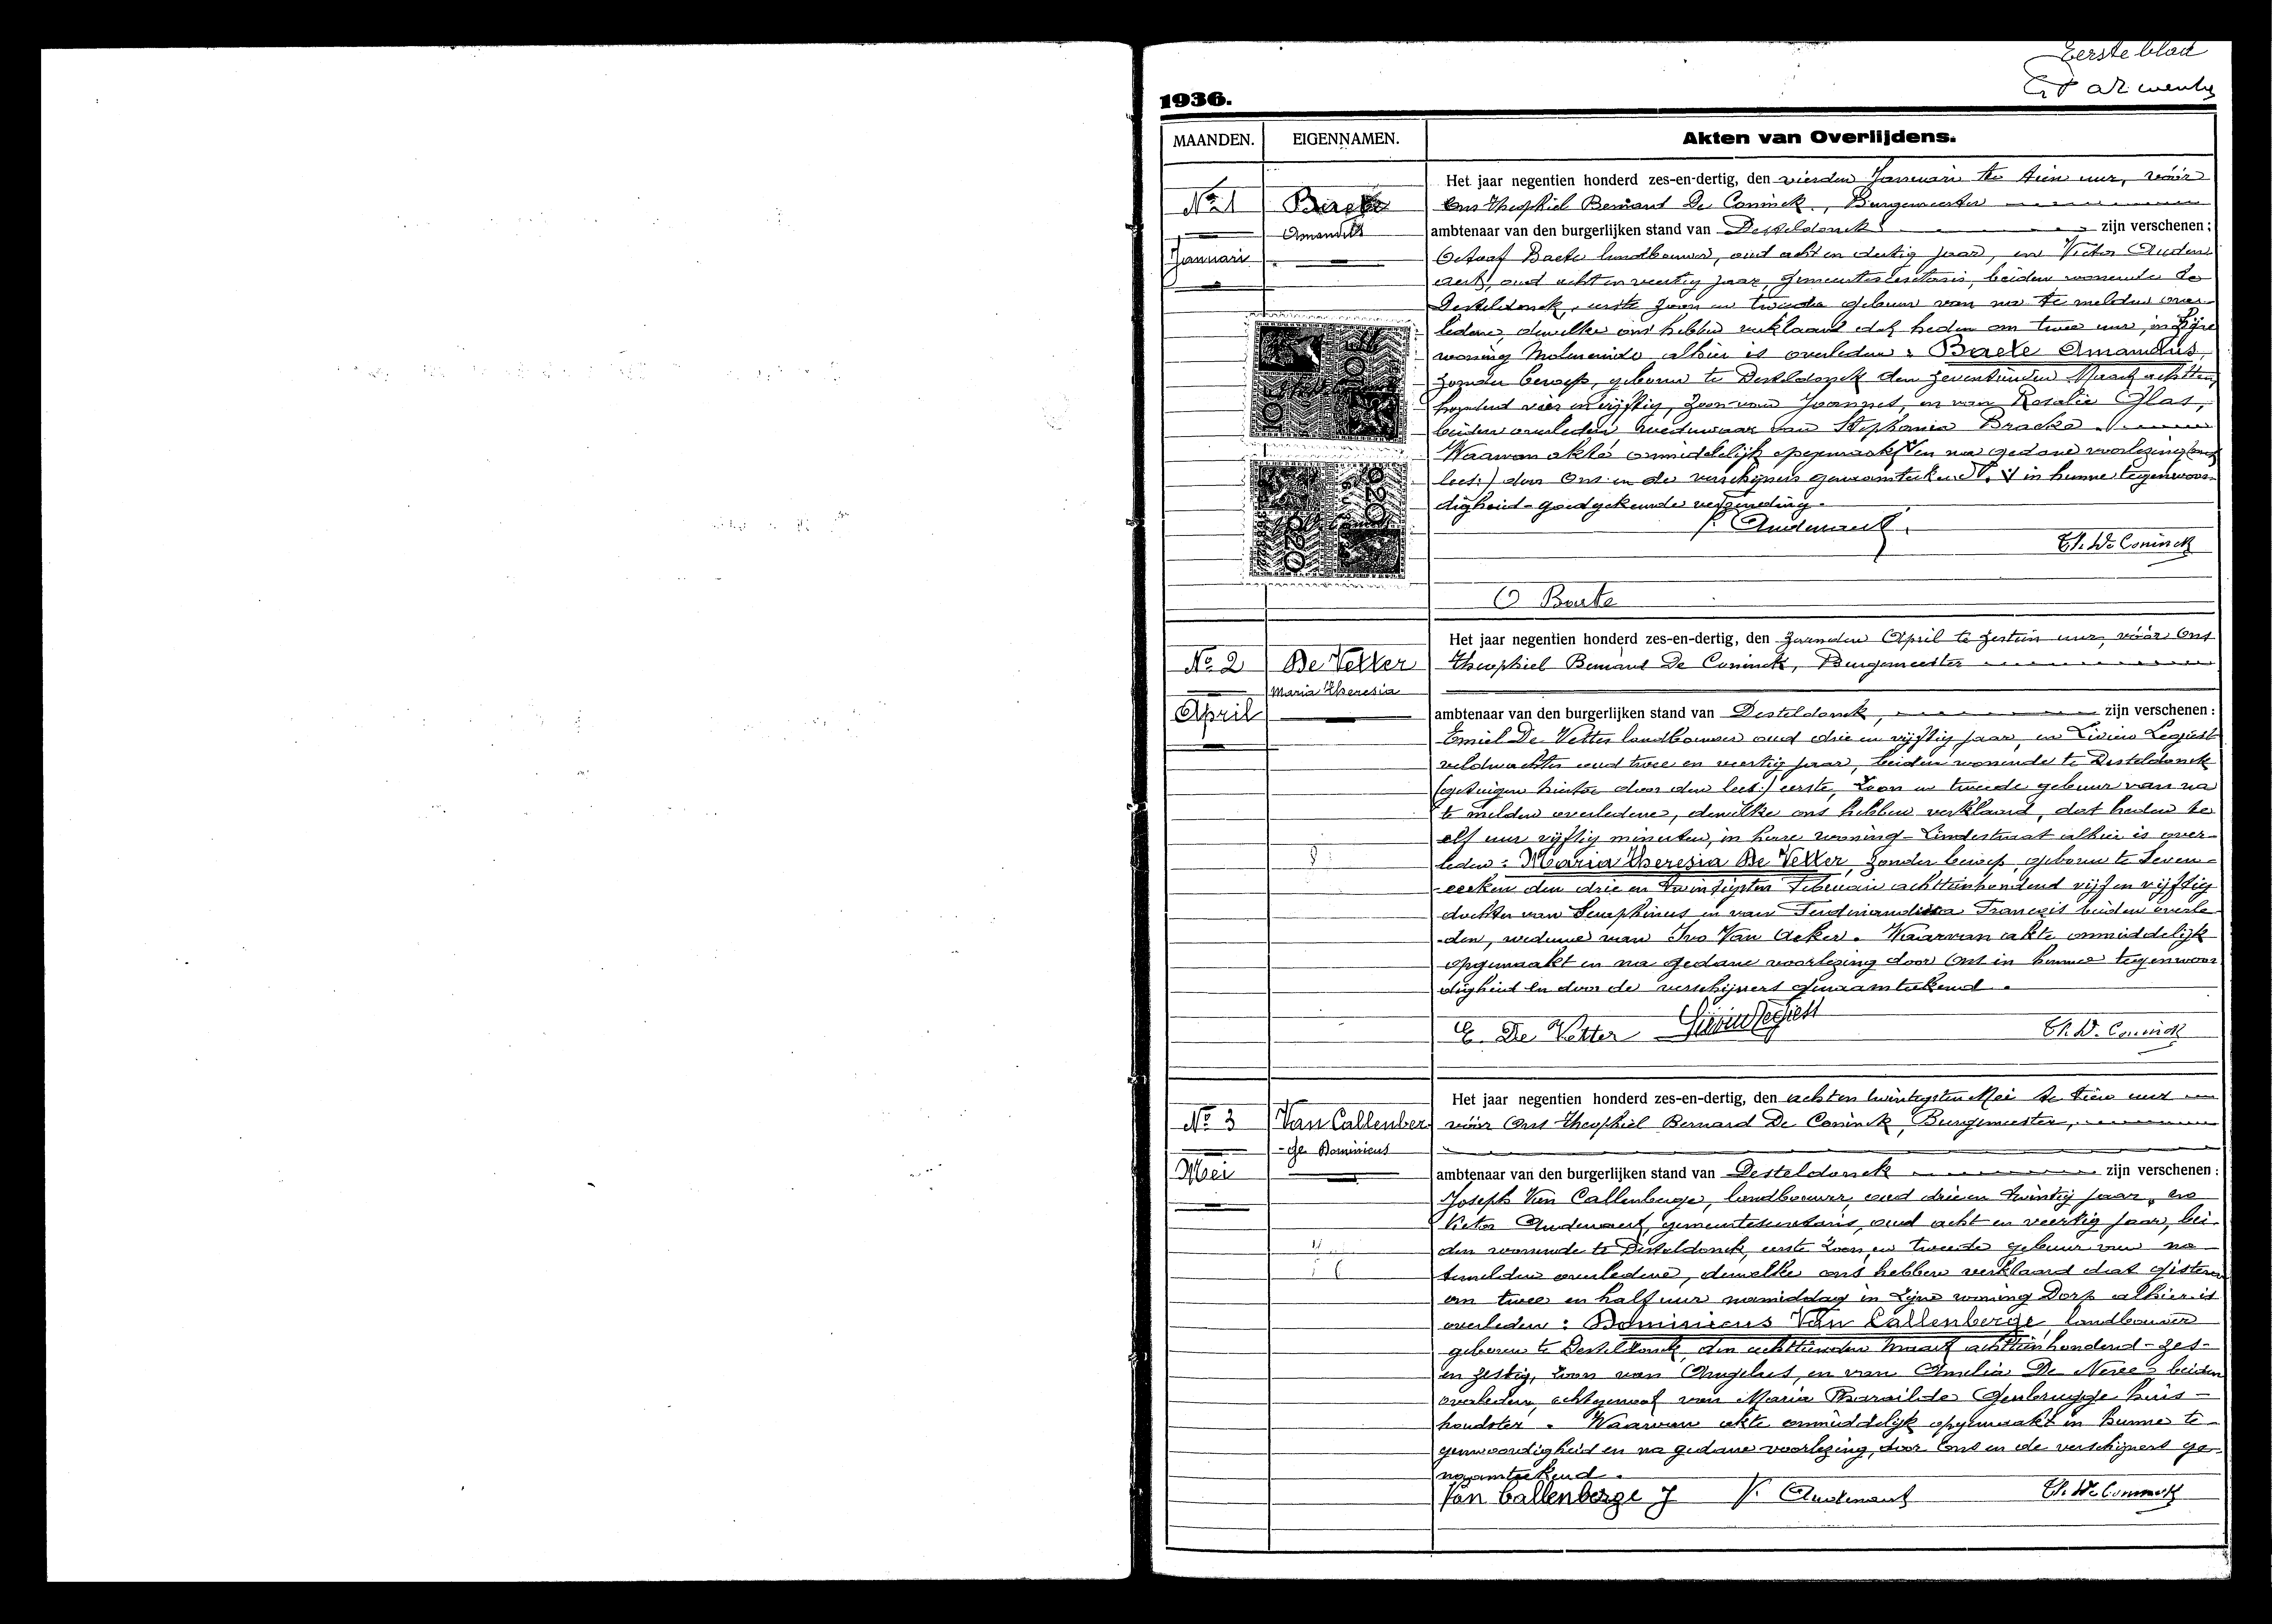 Eerste blad
1936.
MAANDEN. EIGENNAMEN. Akten van Overlijdens.
No 1
Januari
Baete
Amandus
Het jaar negentien honderd zes-en-dertig, den vierden Januari te tien uur, vóór
Ons Theophiel Bernard De Coninck, Burgemeester
ambtenaar van den burgerlijken stand van Desteldonck zijn verschenen:
Octaaf Baete landbouwer, oud acht en dertig jaar, en Victor Auden
aert, oud acht en veertig jaar, gemeentesecretaris, beiden wonende te
Desteldonck, eerste zoon en tweede gebuur van na te melden over-
ledene, dewelke ons hebben verklaard dat heden om twee uur, in zijne
woning Moleneinde alhier is overleden: Baete Amandus,
zonder beroep, geboren te Desteldonck den zeventienden Maart achttien
honderd vier en vijftig, zoon van Joannes, en van Rosalie Glas,
beiden overleden weduwaar van Stephanie Bracke.
Waarvan akte onmiddelijk opgemaakt en na gedane voorlezing
lees:) door Ons en de verschijners genaamteekend. in hunne tegenwoor-
digheid - goedgekeurde verzending.
V. Audenaert
Th. De Coninck
O Baete
No 2
April
De Vetter
Maria Theresia
Het jaar negentien honderd zes-en-dertig, den zevenden April te zestien uur, vóór Ons
Theophiel Bernard De Coninck, Burgemeester
ambtenaar van den burgerlijken stand van Desteldonck, zijn verschenen:
Emiel De Vetter landbouwer oud drie en vijftig jaar, en Livien Legiest
veldwachter oud twee en veertig jaar, beiden wonende te Desteldonck
(getuigen hiertoe door den lees:) eerste, zoon en tweede gebuur van na
te melden overledene, dewelke ons hebben verklaard, dat heden te
elf uur vijftig minuten, in hare woning - Lindestraat alhier is over-
leden: Maria Theresia De Vetter, zonder beroep, geboren te Seven-
-eecken den drie en twintigsten Februari achttienhonderd vijf en vijftig
dochter van Seraphinus en van Ferdinandina Francois beiden overle
-den, weduwe van Ivo Van Acker. Waarvan akte onmiddelijk
opgemaakt en na gedane voorlezing door Ons in hunne tegenwoor
digheid en door de verschijners genaamteekend.
E. De Vetter Livien Legiest Th. D. Coninck
No 3
Mei
Van Callenber
-ge Dominicus
Het jaar negentien honderd zes-en-dertig, den acht en twintigsten Mei te tien uur
vóór Ons Theophiel Bernard De Coninck, Burgemeester,
ambtenaar van den burgerlijken stand van Desteldonck zijn verschenen:
Joseph Van Callenberge, landbouwer, oud drie en twintig jaar, en
Victor Audenaert, gemeentesecretaris, oud acht en veertig jaar, bei-
den wonende te Desteldonck, eerste zoon, en tweede gebuur van na
temelden overledene, dewelke ons hebben verklaard dat gisteren
om twee en half uur namiddag in zijne woning Dorp alhier is
overleden: Dominicus Van Callenberge, landbouwer
geboren te Desteldonck, den achttienden Maart achttienhonderd-zes-
en zestig, zoon van Angelus, en van Amelia De Neve - beiden
overleden, echtgenoot van Maria Pharaïlde Genbrugge huis-
houdster. Waarvan akte onmiddelijk opgemaakt in hunne te-
genwoordigheid en na gedane voorlezing, door Ons en de verschijners ge-
naamteekend.
Van Callenberge J V. Audenaert Th. De Coninck